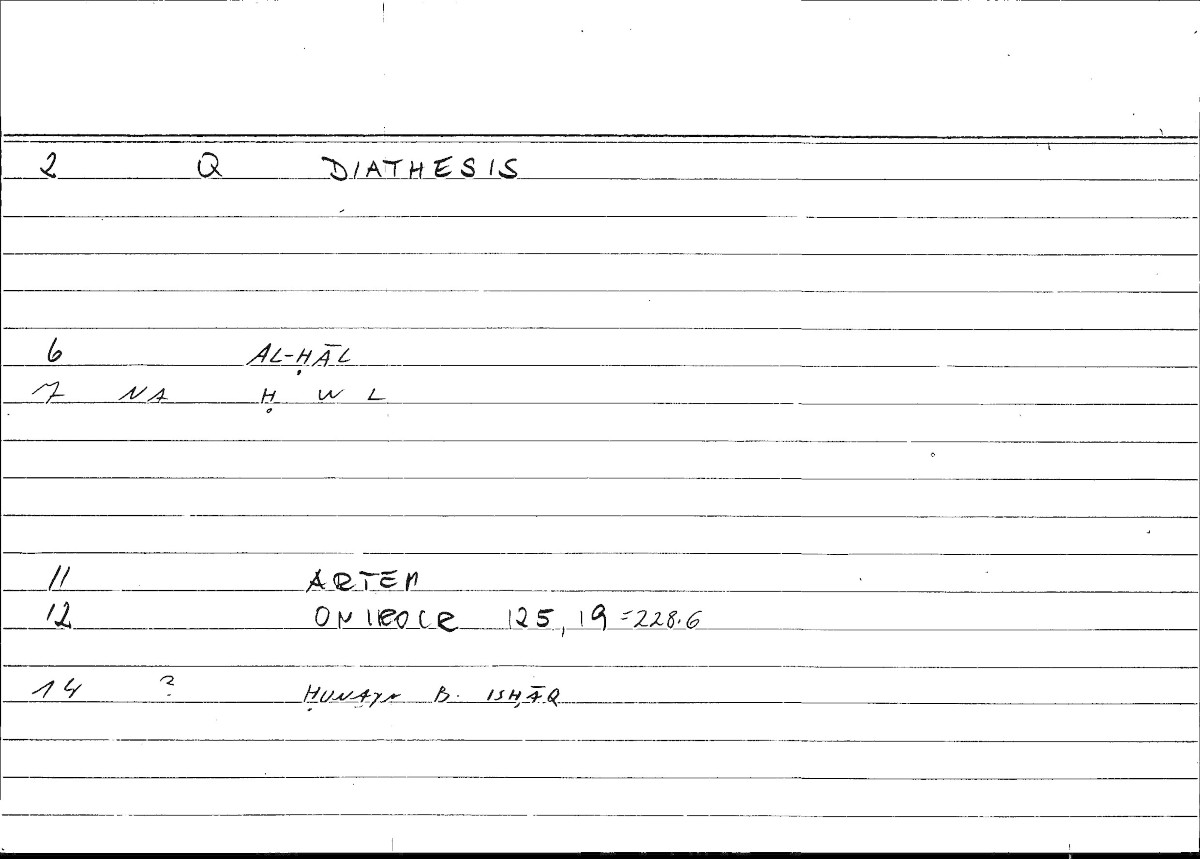 2 Q DIATHESIS
6 AL-ḤĀL
7 NA Ḥ W L
11 ARTEM
12 ONIROCR 125,19 =228.6
14 ? ḤUNAYN B. ISḤĀQ